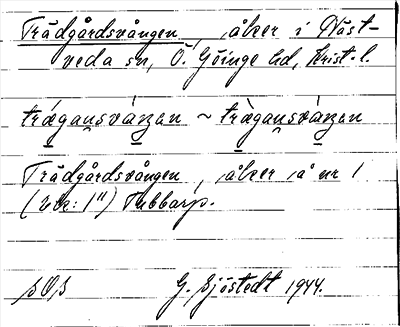 Trädgårdsvången, åker i Näst-
veda sn, Ö. Göinge hd, Krist. l.
trágansváṉen ~ tràgansváṉen
Trädgårdsvången, åker å nr 1
1") Tubbarp.
G. Sjöstedt 1944.